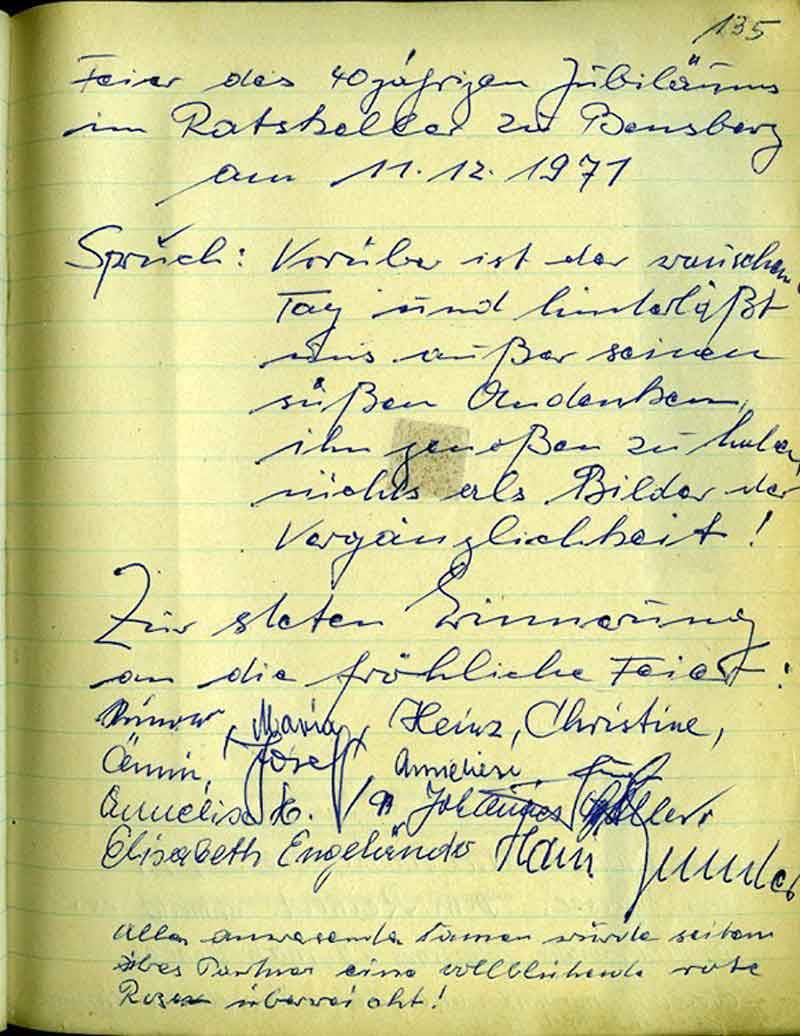 135
Feier des 40jährigen Jubiläums
im Ratskeller zu Bensberg
am 11.12.1971
Spruch: Vorüber ist der rauschende
Tag und hinterläßt
uns außer seinen
süßen Andenken,
ihn genoßen zu haben,
nichts als Bilder der
Vergänglichkeit!
Zur steten Erinnerung
an die fröhliche Feier:
Maria, Heinz, Christine,
Änni, Josef, Anneliese,
Annelise H. Johannes
Elisabeth Engeländer Hans
Allen anwesenden Damen wurde seitens
ihres Partner eine vollblühende rote
Rose überreicht!